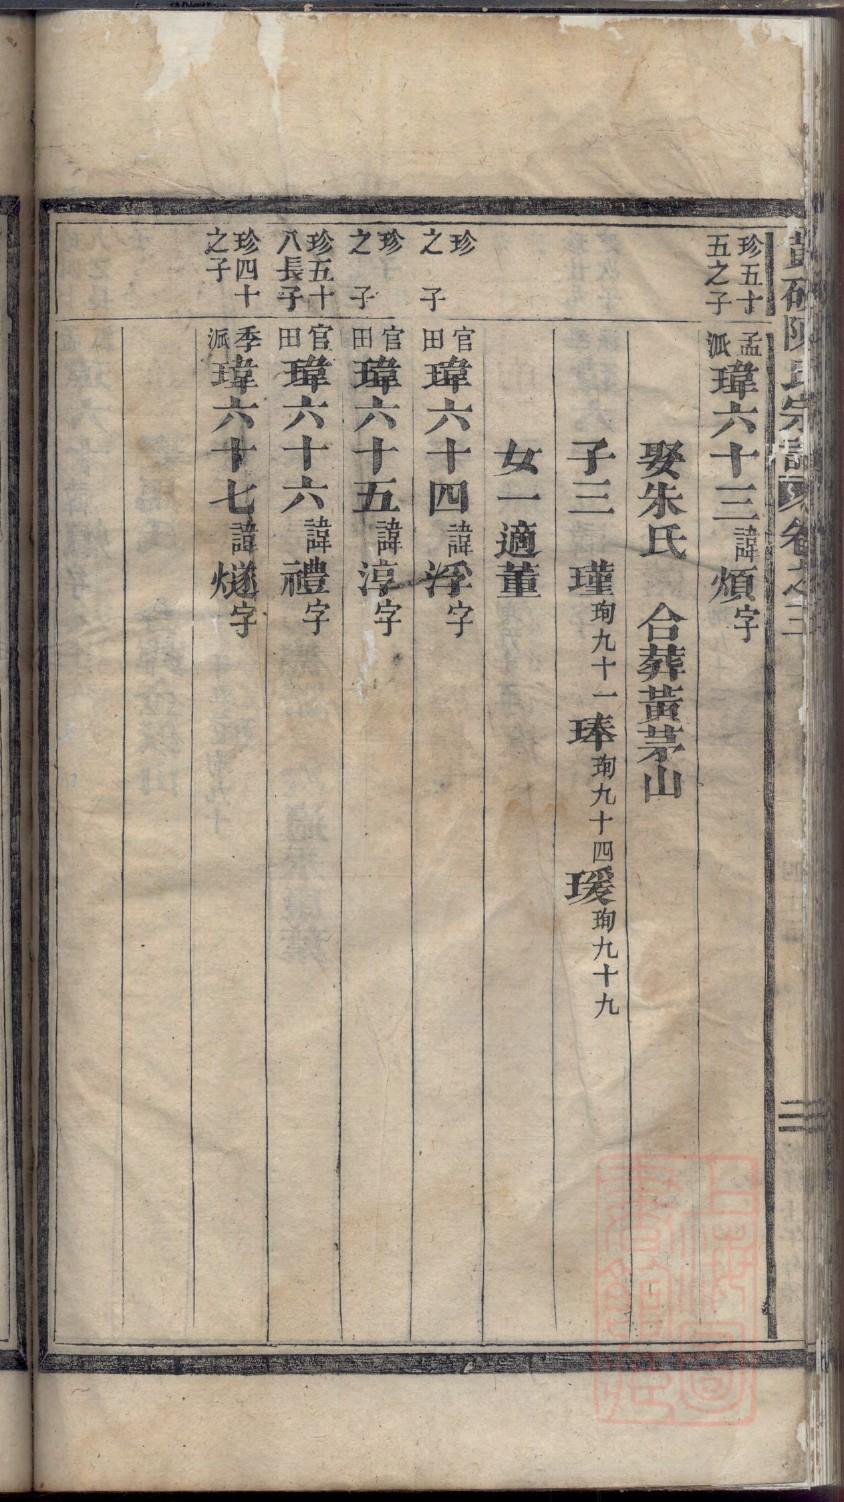 陳氏宗譜
卷之三
珍五十五之子
孟派瑋六十三諱煩字
娶朱氏 合葬黃茅山
子三 瑾珣九十一琫珣九十四瑗珣九十九
女一適董
珍 之子
官田瑋六十四諱浮字
珍 之子
官田瑋六十五諱淳字
珍五十八長子
官田瑋六十六諱禮字
珍四十之子
季派瑋六十七諱燧字